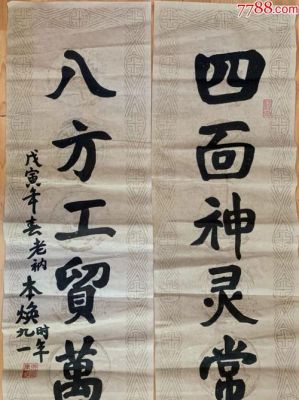 7788.com
四面神灵常
八方工貿萬
戊寅年春老衲
本焕时年
九一